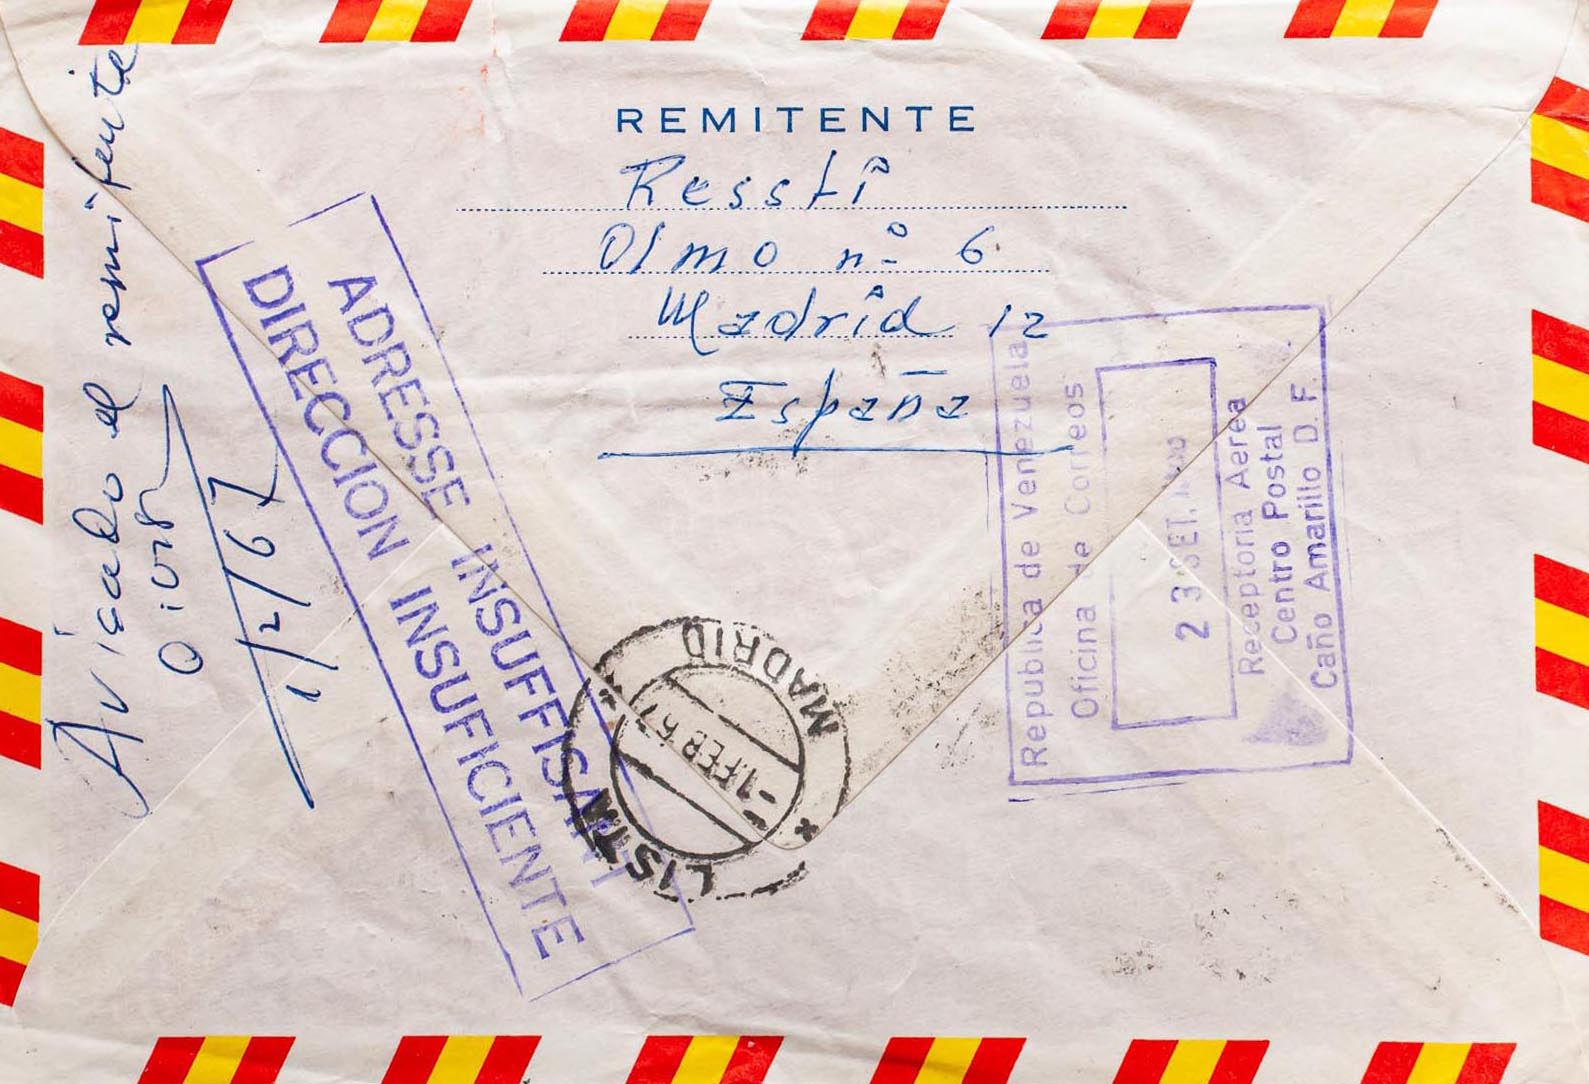 REMITENTE
Ressti
Olmo nº 6
Madrid 12
España
Avisado el remitente
1/2/67
ADRESSE INSUFFISANT
DIRECCION INSUFICIENTE
MADRID
-1.FEB 67
LISTA
Republica de Venezuela
Oficina de Correos
23 SET.
Receptoria Aerea
Centro Postal
Caño Amarillo D. F.